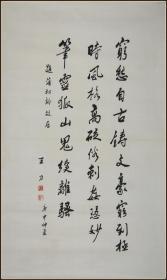 窮愁自古鑄文豪窮到極
時風格高破俗刺姦議妙
筆靈狐山鬼續離騷
題蒲松齡故居
王力
庚申仲夏